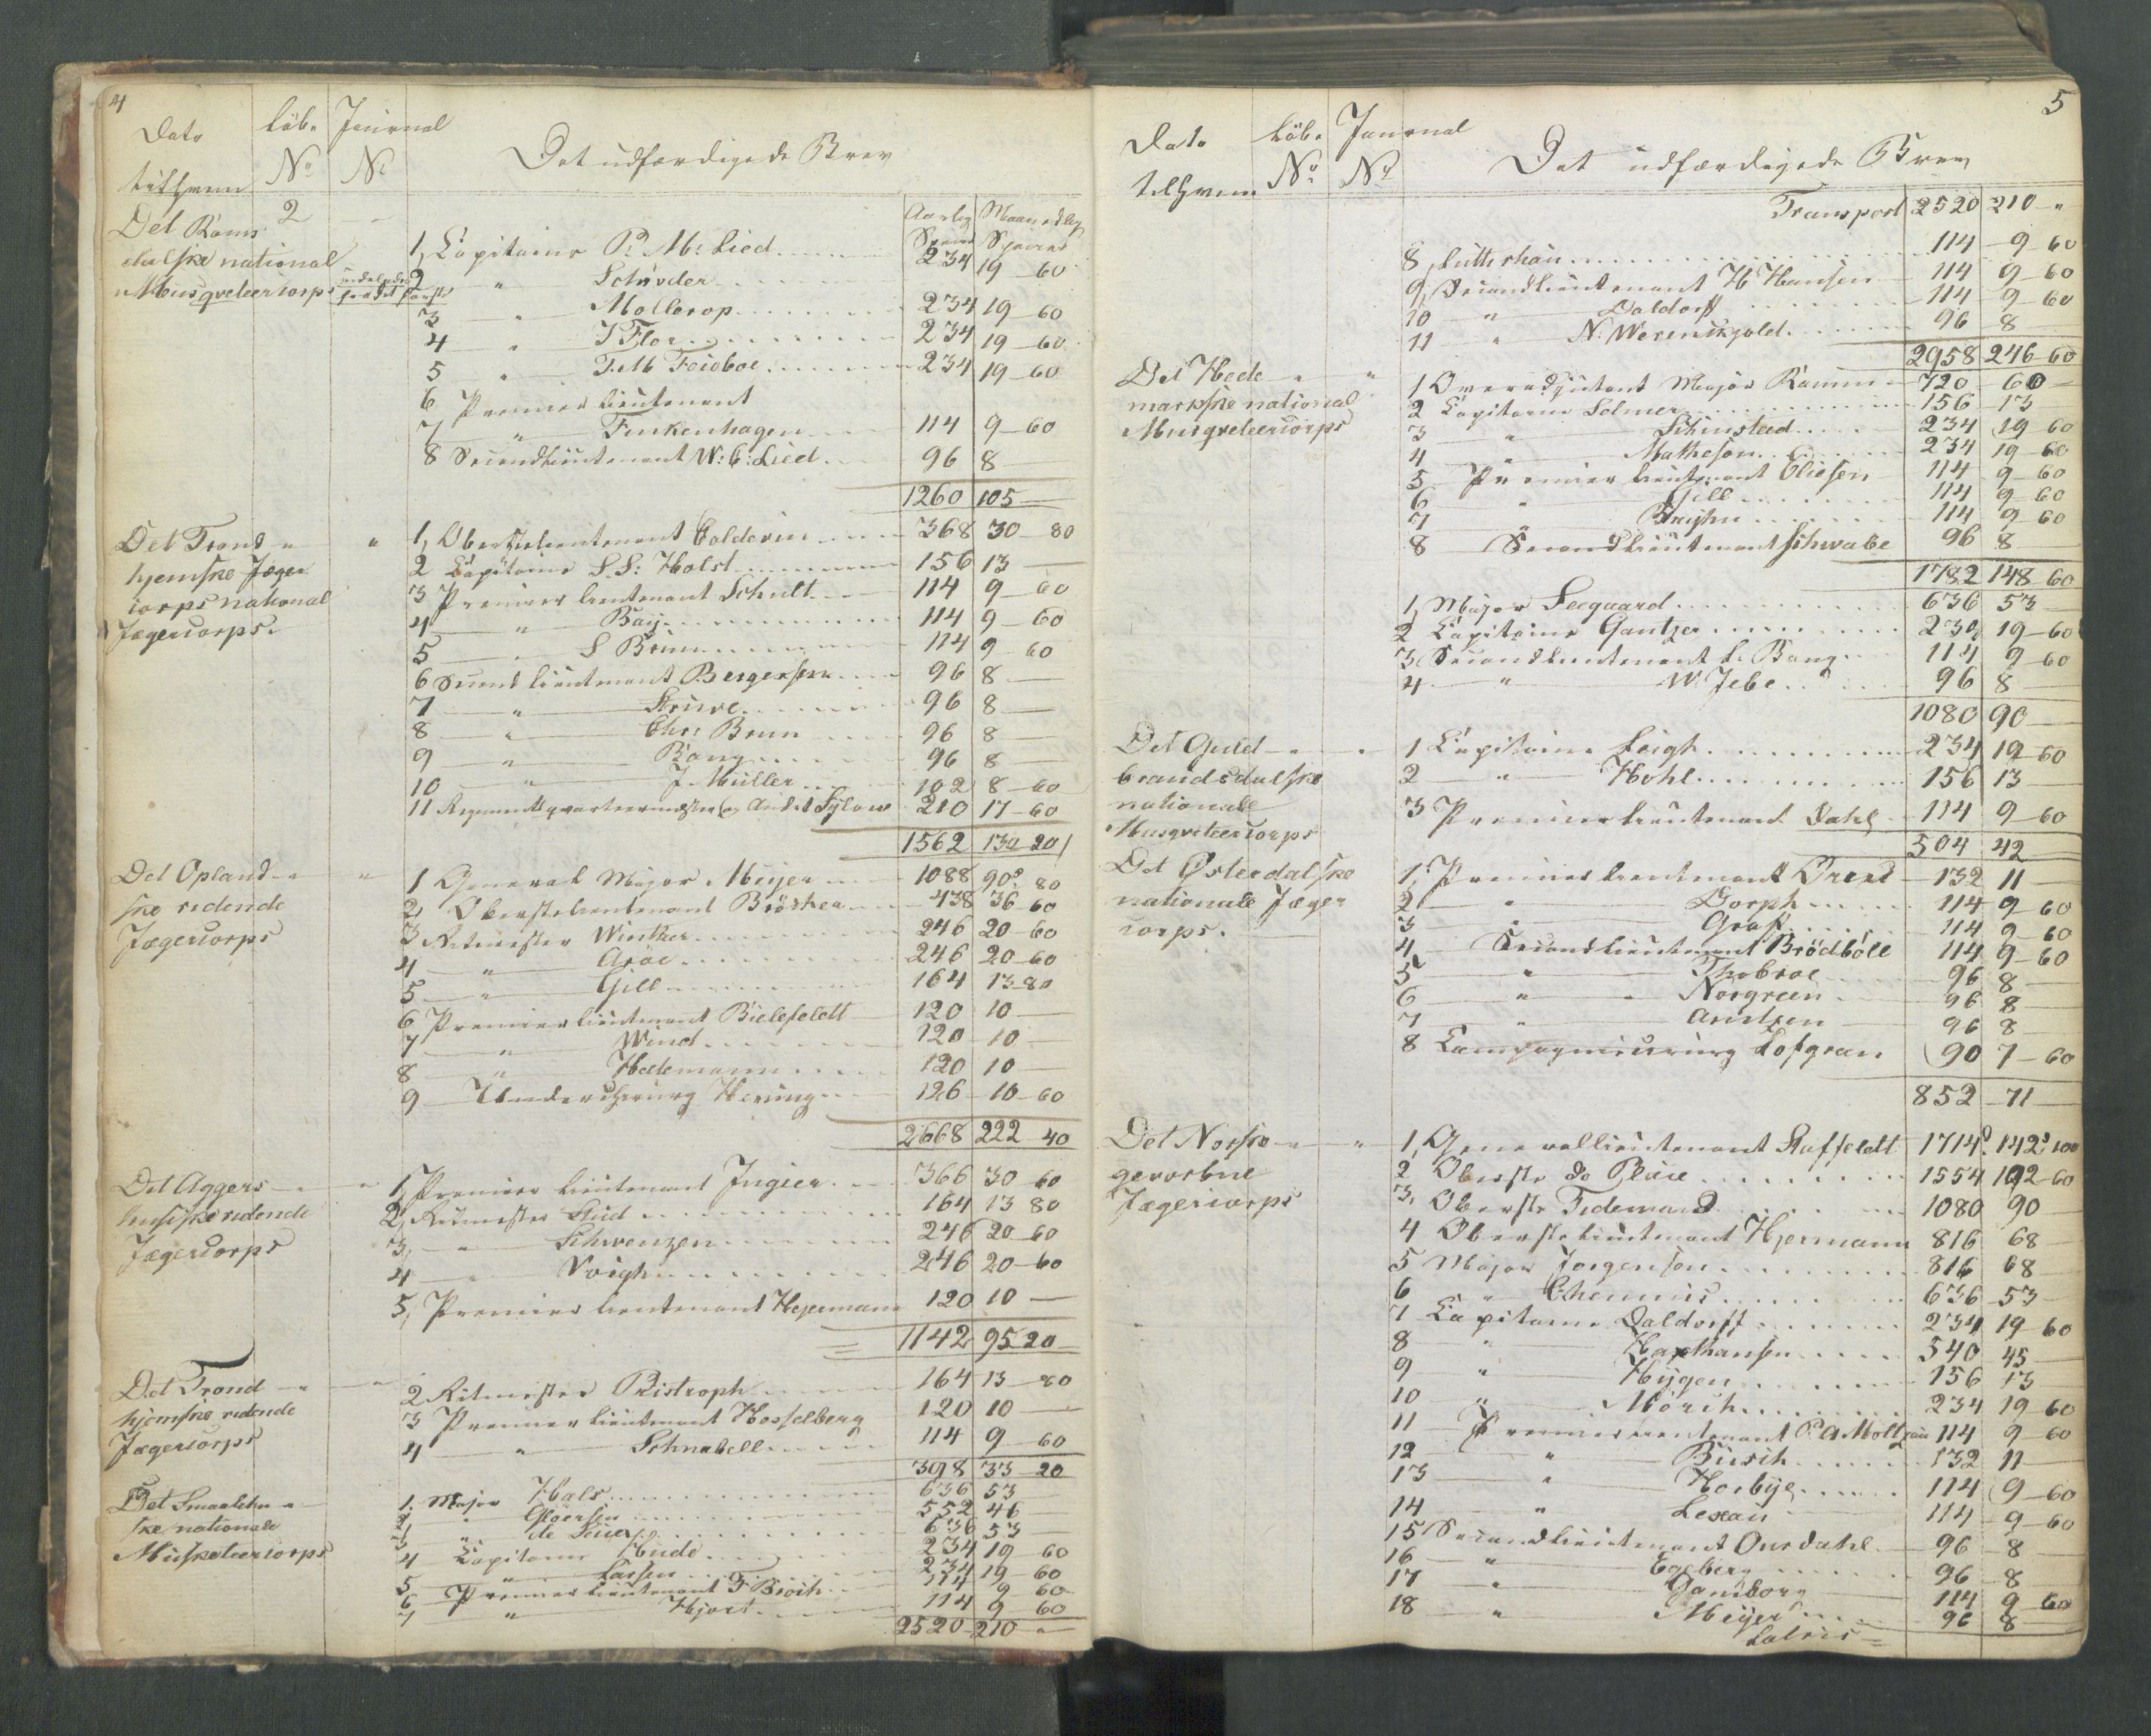 4
Dato Løb. Journal
tilhvem No No Det udfærdigede Brev
Det Roms- 2 Aarlig Maanedlig
dalske national 1, Capitaine P: M: Lied 234 19 60
Musqveteercorps 2 " Schrøder
3 " Mollerop 234 19 60
4 " J Flor 234 19 60
5 " T. M Feidboe 234 19 60
6 Premier Lieutenant
7 " Finkenhagen 114 9 60
8 Secondlieutenant W: C: Lied 96 8
1260 105
Det Trond- " 1, Oberstelieutenant Coldevin 368 30 80
hjemske Jæger 2 Capitaine S. S: Holst 156 13
corps national 3 Premier Lieutenant Schult 114 9 60
Jægercorps. 4 " Baij 114 9 60
5 " S Brun 114 9 60
6 Second Lieutenant Bergersen 96 8
7 " 96 8
8 " Chr: Brun 96 8
9 " Bang 96 8
10 " J. Müller 102 8 60
11 Regimentsqvarteermester og Audit Sylow 210 17 60
1562 130 20
Det Opland- " 1 General Major Meijer 1088 90 80
ske ridende 2, Oberstelieutenant 438 36 60
Jægercorps 3 Ritmester Winther 246 20 60
4 " 246 20 60
5 " Gill 164 13 80
6 Premierlieutenant Bielefeldt 120 10
7 " Wind 120 10
8 " Hedemann 120 10
9 Underchirurg Hering 126 10 60
2668 222 40
Det Aggers- 1, Premier Lieutenant Ingier 366 30 60
husiske ridende 2, Ritmester Lüd 164 13 80
Jægercorps 3, " Schwenzen 246 20 60
4 " Voigh 246 20 60
5, Premier Lieutenant Hejermann 120 10
1142 95 20
Det Trond- 2 Ritmester Ristroph 164 13 80
hjemske ridende 3 Premier Lieutenant Hosselberg 120 10
Jægercorps 4 " Schnabell 114 9 60
398 33 20
Det Smaalehn- 1. Major Hals 636 53
ske nationale 2 " Gløersen 552 46
Musketeercorps 3 " de Seue 636 53
4 Capitaine Heide 234 19 60
5 " Larsen 234 19 60
6 Premier Lieutenant F Broch 114 9 60
7 " Hjort 114 9 60
2520 210 "
5
Dato Løb. Journal
tilhvem No No Det udfærdigede Brev
Transport 2520 210 "
8, Lütterhau 114 9 60
9, Secondlieutenant H Hansen 114 9 60
10 " Daldorff 114 9 60
11 " N. Werenskjold 96 8
2958 246 60
Det Hede- " 1 Overadjutant Major Ramm 720 60
markske national 2 Capitaine Solmer 156 13
Musqveteercorps 3 " Schinstad 234 19 60
4 " Matheson 234 19 60
5 Premier Lieutenant Eliesen 114 9 60
6 " Gill 114 9 60
7 " 114 9 60
8 Secondlieutenant Schwabe 96 8
1782 148 60
1, Major Seegaard 636 53
2 Capitaine Gantzer 234 19 60
3 Secondlieutenant L. Bang 114 9 60
4 " W. Jebe 96 8
1080 90
Det Guld- " 1 Capitaine Leigh 234 19 60
brandsdalske 2 " Hohl 156 13
nationale 3 Premier Lieutenant Dahl 114 9 60
Musqveteercorps
504 42
Det Østerdalske 1, Premier Lieutenant 132 11
nationale Jæger 2 " Dorph 114 9 60
corps. 3 " Graff 114 9 60
4 Secondlieutenant Brødbøll 114 9 60
5 " 96 8
6 " Norgreen 96 8
7 " Arntzen 96 8
8 Compagniechirurg Lofgran 90 7 60
852 71
Det Norske " 1, Generallieutenant Staffeldt 1714 142
gevorbne 2 Oberste de Place 1554 60
Jægercorps 3, Oberste Tidemand 1080 90
4 Oberstelieutenant Hjermann 816 68
5 Major Jorgensen 816 68
6 " Chemnis 636 53
7 Capitaine Daldorff 234 19 60
8 " Haxthausen 540 45
9 " Hijgen 156 13
10 " Mörch 234 19 60
11 Premier Lieutenant P. A Moltzau 114 9 60
12 " Busch 132 11
13 " Hoebye 114 9 60
14 " Lexau 114 9 60
15 Secondlieutenant Oursdahl 96 8
16 " Egeberg 96 8
17 " Gamborg 114 9 60
18 " Meijer 96 8
Lateris